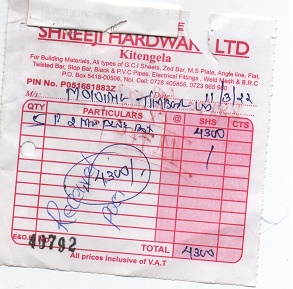 SHREEJI HARDWARE LTD
Kitengela
For Building Materials, All types of G.C.I Sheets, Zed Bar, M.S Plate, Angle line, Flat,
Twisted Bar, Slop Bar, Black & P.V.C Pipes, Electrical Fittings, Weld Mesh & B.R.C
P.O. Box 5418-00506, Nbi. Cell: 0728 405858, 0723 965
PIN No. P051681883Z
M/s 11/3/22
QTY PARTICULARS @ SHS CTS
5 4300
4300/-
Received
E&O.E
40792 TOTAL 4300
All prices inclusive of V.A.T